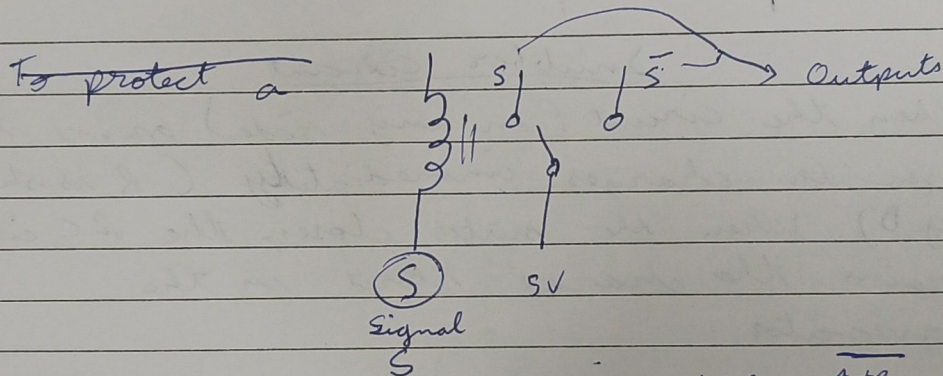 To protect a
S S̅ Outputs
S 5V
Signal
S